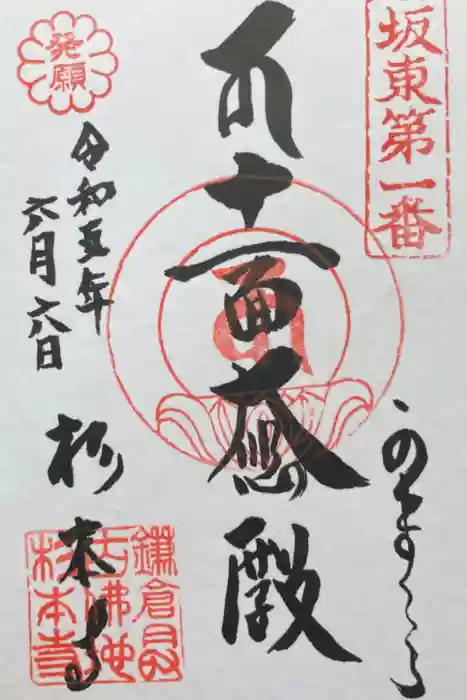 坂東第一番
十一面大悲殿
発願
令和五年
六月六日
杉本寺
鎌倉最
古佛地
杉本寺